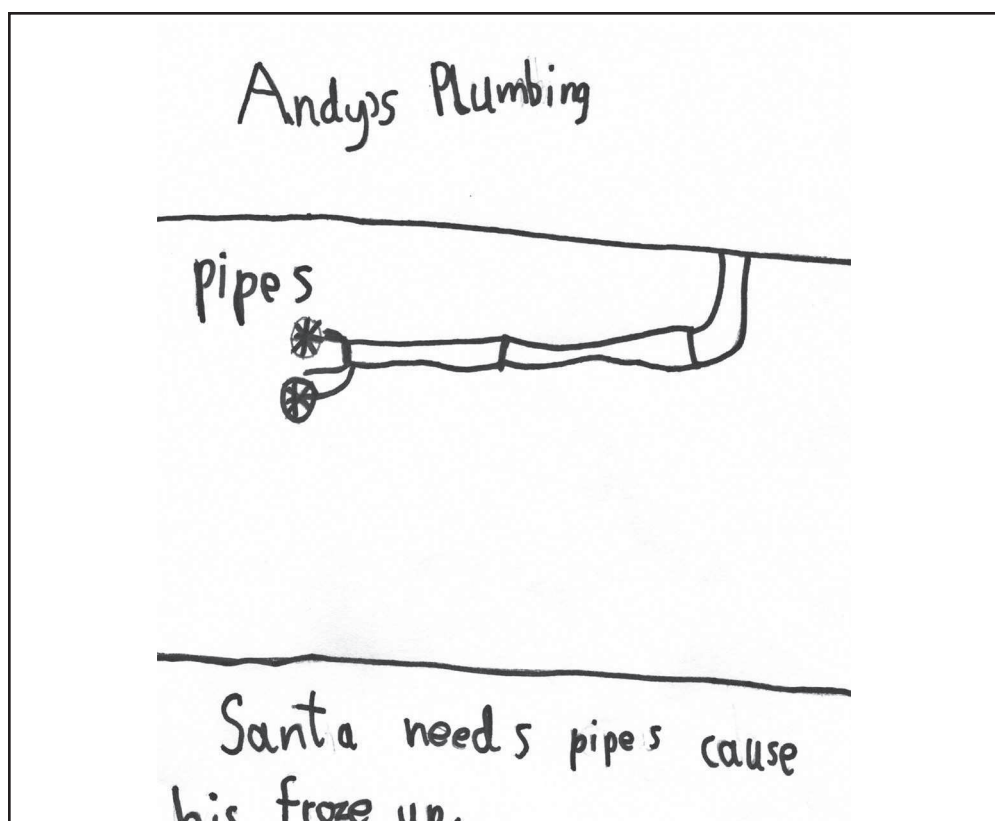 Andy's Plumbing
pipes
Santa needs pipes cause
his froze up.